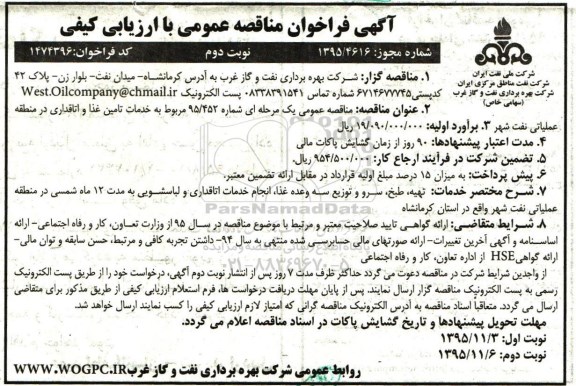 آگهی فراخوان مناقصه عمومی با ارزیابی کیفی
شماره مجوز: ۱۳۹۵/۴۶۱۶ نوبت دوم کد فراخوان: ۱۴۷۴۳۹۶
شرکت ملی نفت ایران
شرکت نفت مناطق مرکزی ایران
شرکت بهره برداری نفت و گاز غرب
(سهامی خاص)
۱. مناقصه گزار: شرکت بهره برداری نفت و گاز غرب به آدرس کرمانشاه- میدان نفت- بلوار زن- پلاک ۴۲
کدپستی ۶۷۱۴۶۷۷۷۴۵ شماره تماس ۰۸۳۳۸۳۹۱۵۴۱ پست الکترونیک West.Oilcompany@chmail.ir
۲. عنوان مناقصه: مناقصه عمومی یک مرحله ای شماره ۹۵/۴۵۲ مربوط به خدمات تامین غذا و اتاقداری در منطقه
عملیاتی نفت شهر ۳. برآورد اولیه: ریال
۴. مدت اعتبار پیشنهادها: ۹۰ روز از زمان گشایش پاکات مالی
۵. تضمین شرکت در فرآیند ارجاع کار: ۹۵۴/۵۰۰/۰۰۰ ریال
۶. پیش پرداخت: به میزان ۱۵ درصد مبلغ اولیه قرارداد در مقابل ارائه تضمین معتبر.
۷. شرح مختصر خدمات: تهیه، طبخ، سرو و توزیع سه وعده غذا، انجام خدمات اتاقداری و لباسشویی به مدت ۱۲ ماه شمسی در منطقه
عملیاتی نفت شهر واقع در استان کرمانشاه
۸. شرایط متقاضی: ارائه گواهی تایید صلاحیت معتبر و مرتبط با موضوع مناقصه در سال ۹۵ از وزارت تعاون، کار و رفاه اجتماعی- ارائه
اساسنامه و آگهی آخرین تغییرات- ارائه صورتهای مالی حسابرسی شده منتهی به سال ۹۴- داشتن تجربه کافی و مرتبط، حسن سابقه و توان مالی-
ارائه گواهی HSE از اداره تعاون، کار و رفاه اجتماعی
از واجدین شرایط شرکت در مناقصه دعوت می گردد حداکثر ظرف مدت ۷ روز پس از انتشار نوبت دوم آگهی، درخواست خود را از طریق پست الکترونیک
رسمی به پست الکترونیک مناقصه گزار ارسال نمایند. پس از پایان مهلت دریافت درخواست ها، فرم استعلام ارزیابی کیفی از طریق مذکور برای متقاضی
ارسال می گردد. متعاقباً اسناد مناقصه به آدرس الکترونیک مناقصه گرانی که امتیاز لازم ارزیابی کیفی را کسب نمایند ارسال خواهد شد.
مهلت تحویل پیشنهادها و تاریخ گشایش پاکات در اسناد مناقصه اعلام می گردد.
نوبت اول: ۱۳۹۵/۱۱/۳
نوبت دوم: ۱۳۹۵/۱۱/۶
روابط عمومی شرکت بهره برداری نفت و گاز غرب WWW.WOGPC.IR
ParsNamadData
۰۲۱-۸۸۳۴۹۶۷۰-۵